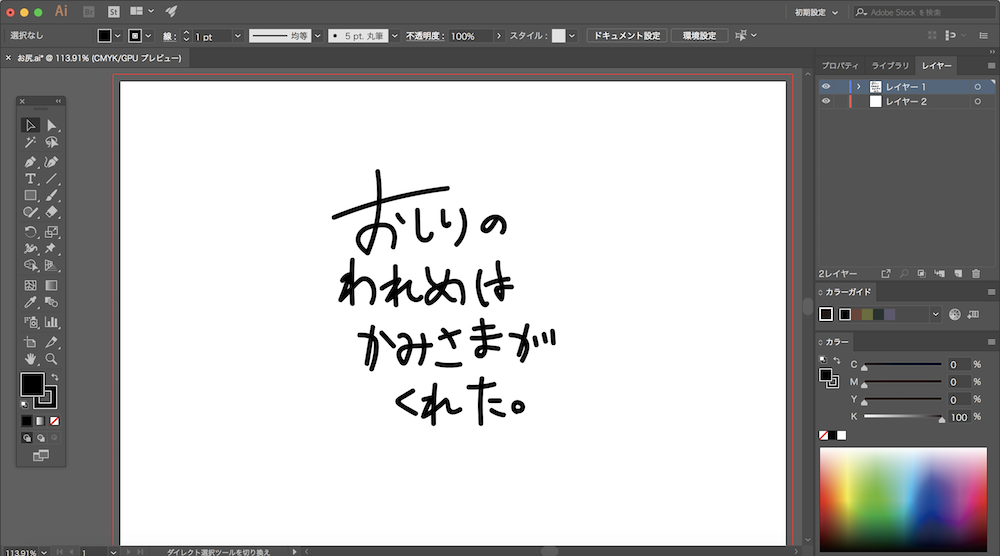 Ai Br St 初期設定 Adobe Stock を検索
選択なし 線: 1 pt 均等 5 pt. 丸筆 不透明度: 100% スタイル: ドキュメント設定 環境設定
お尻.ai* @ 113.91% (CMYK/GPU プレビュー)
プロパティ ライブラリ レイヤー
レイヤー 1
レイヤー 2
おしりの
われめは
かみさまが
くれた。
2レイヤー
カラーガイド
カラー
C 0 %
M 0 %
Y 0 %
K 100 %
113.91% 1 ダイレクト選択ツールを切り換え